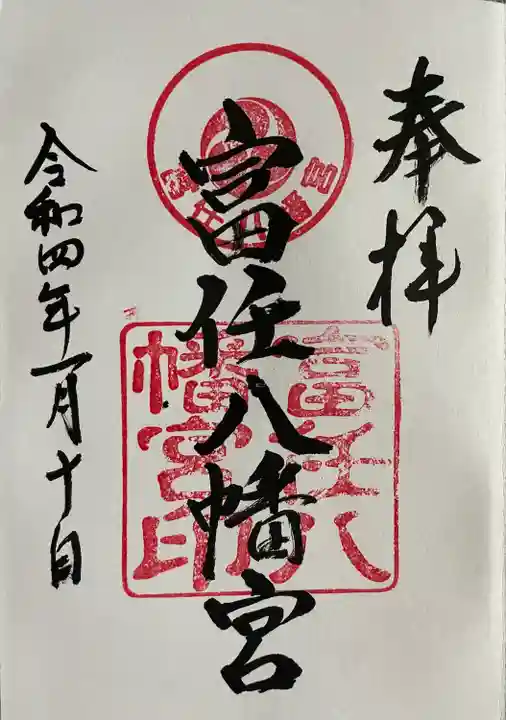 奉拝
富任八幡宮
富任八幡宮
富任八幡宮印
令和四年一月十日